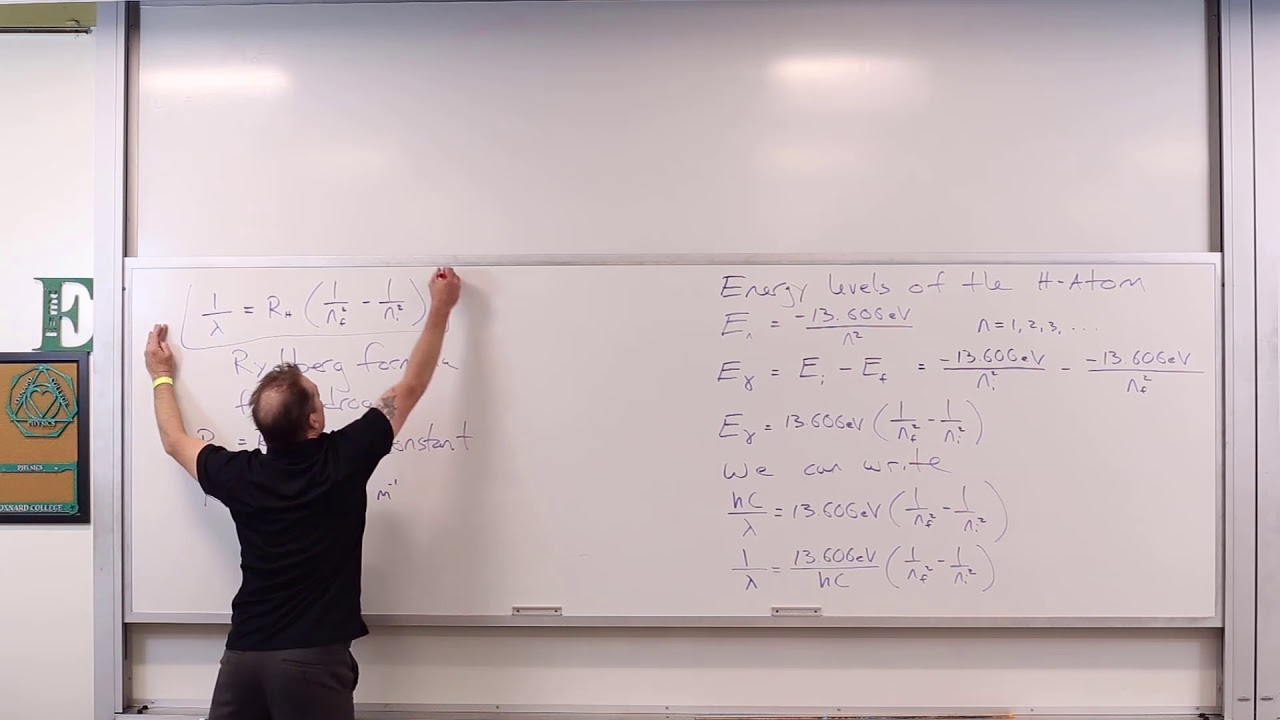 E
PHYSICS
PHYSICS
OXNARD COLLEGE
1/λ = R_H (1/n_f² - 1/n_i²)
Rydberg
R = constant
m⁻¹
Energy levels of the H-Atom
E_n = -13.606eV/n² n = 1, 2, 3, ...
E_γ = E_i - E_f = -13.606eV/n_i² - -13.606eV/n_f²
E_γ = 13.606eV (1/n_f² - 1/n_i²)
We can write
hC/λ = 13.606eV (1/n_f² - 1/n_i²)
1/λ = 13.606eV/hC (1/n_f² - 1/n_i²)